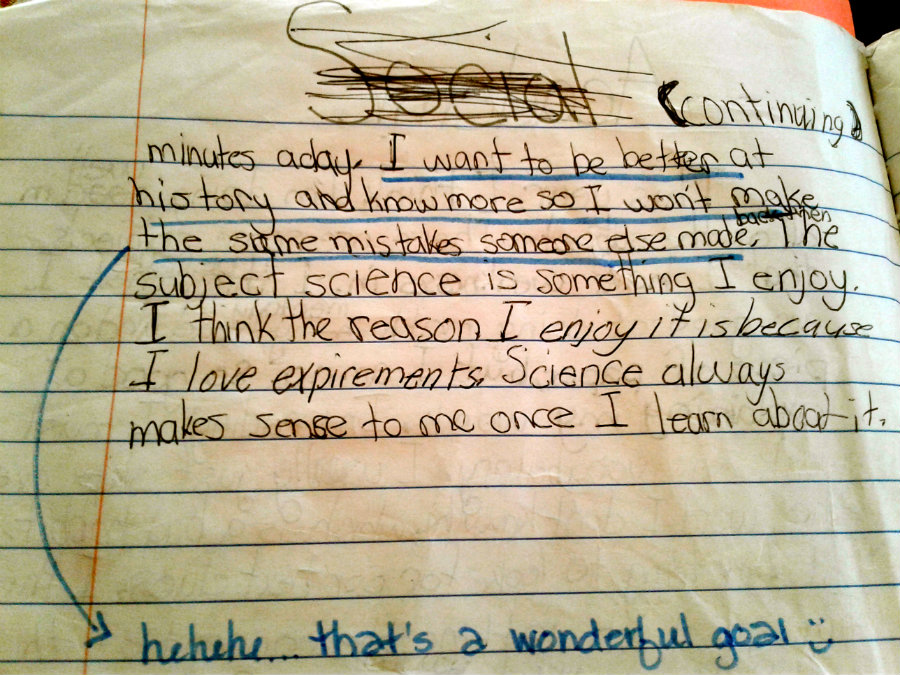 Social
(continuing)
minutes aday. I want to be better at
history and know more so I won't make
the same mistakes someone else made back then. The
subject science is something I enjoy.
I think the reason I enjoy it is because
I love expirements. Science always
makes sense to me once I learn about it.
hehehe... that's a wonderful goal :)